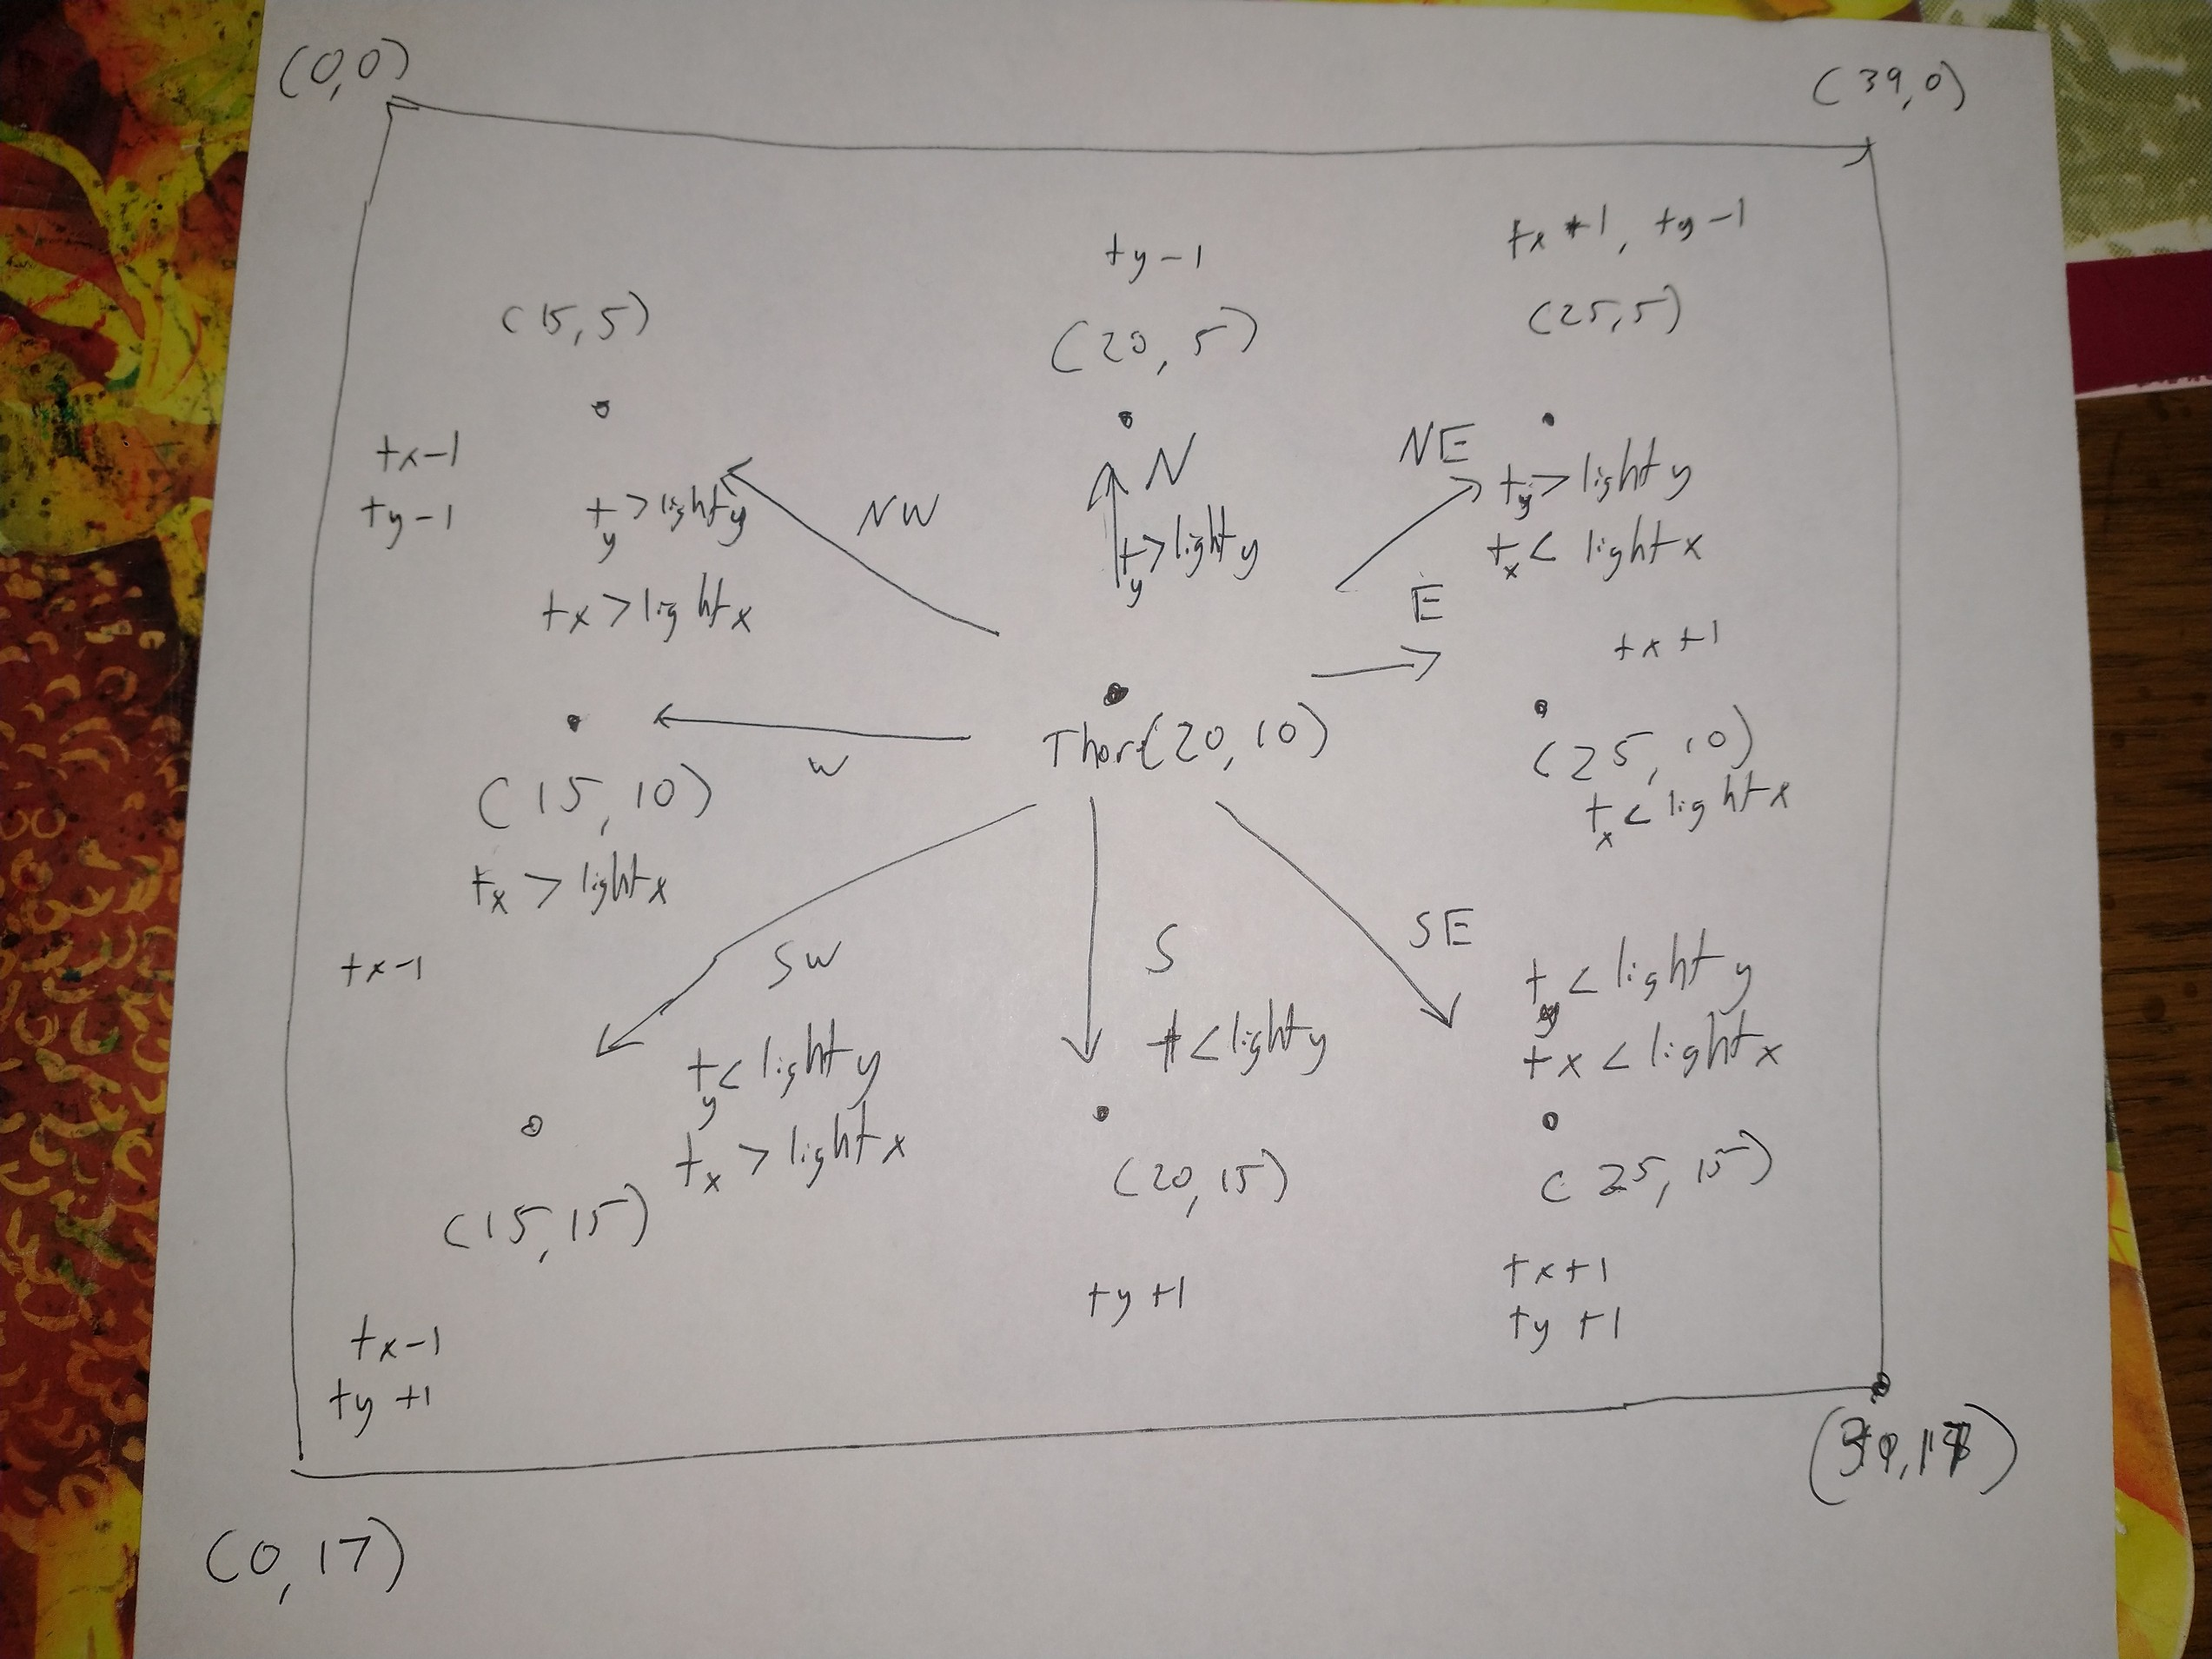 (0,0)
(39,0)
ty-1
tx+1, ty-1
(15,5)
(20,5)
(25,5)
tx-1
ty-1
NW
N
NE
ty>lighty
tx>lightx
ty>lighty
ty>lighty
tx<lightx
E
tx+1
W
Thor(20,10)
(15,10)
tx>lightx
(25,10)
tx<lightx
tx-1
SW
S
SE
ty<lighty
tx>lightx
t<lighty
ty<lighty
tx<lightx
(15,15)
(20,15)
(25,15)
tx-1
ty+1
ty+1
tx+1
ty+1
(0,17)